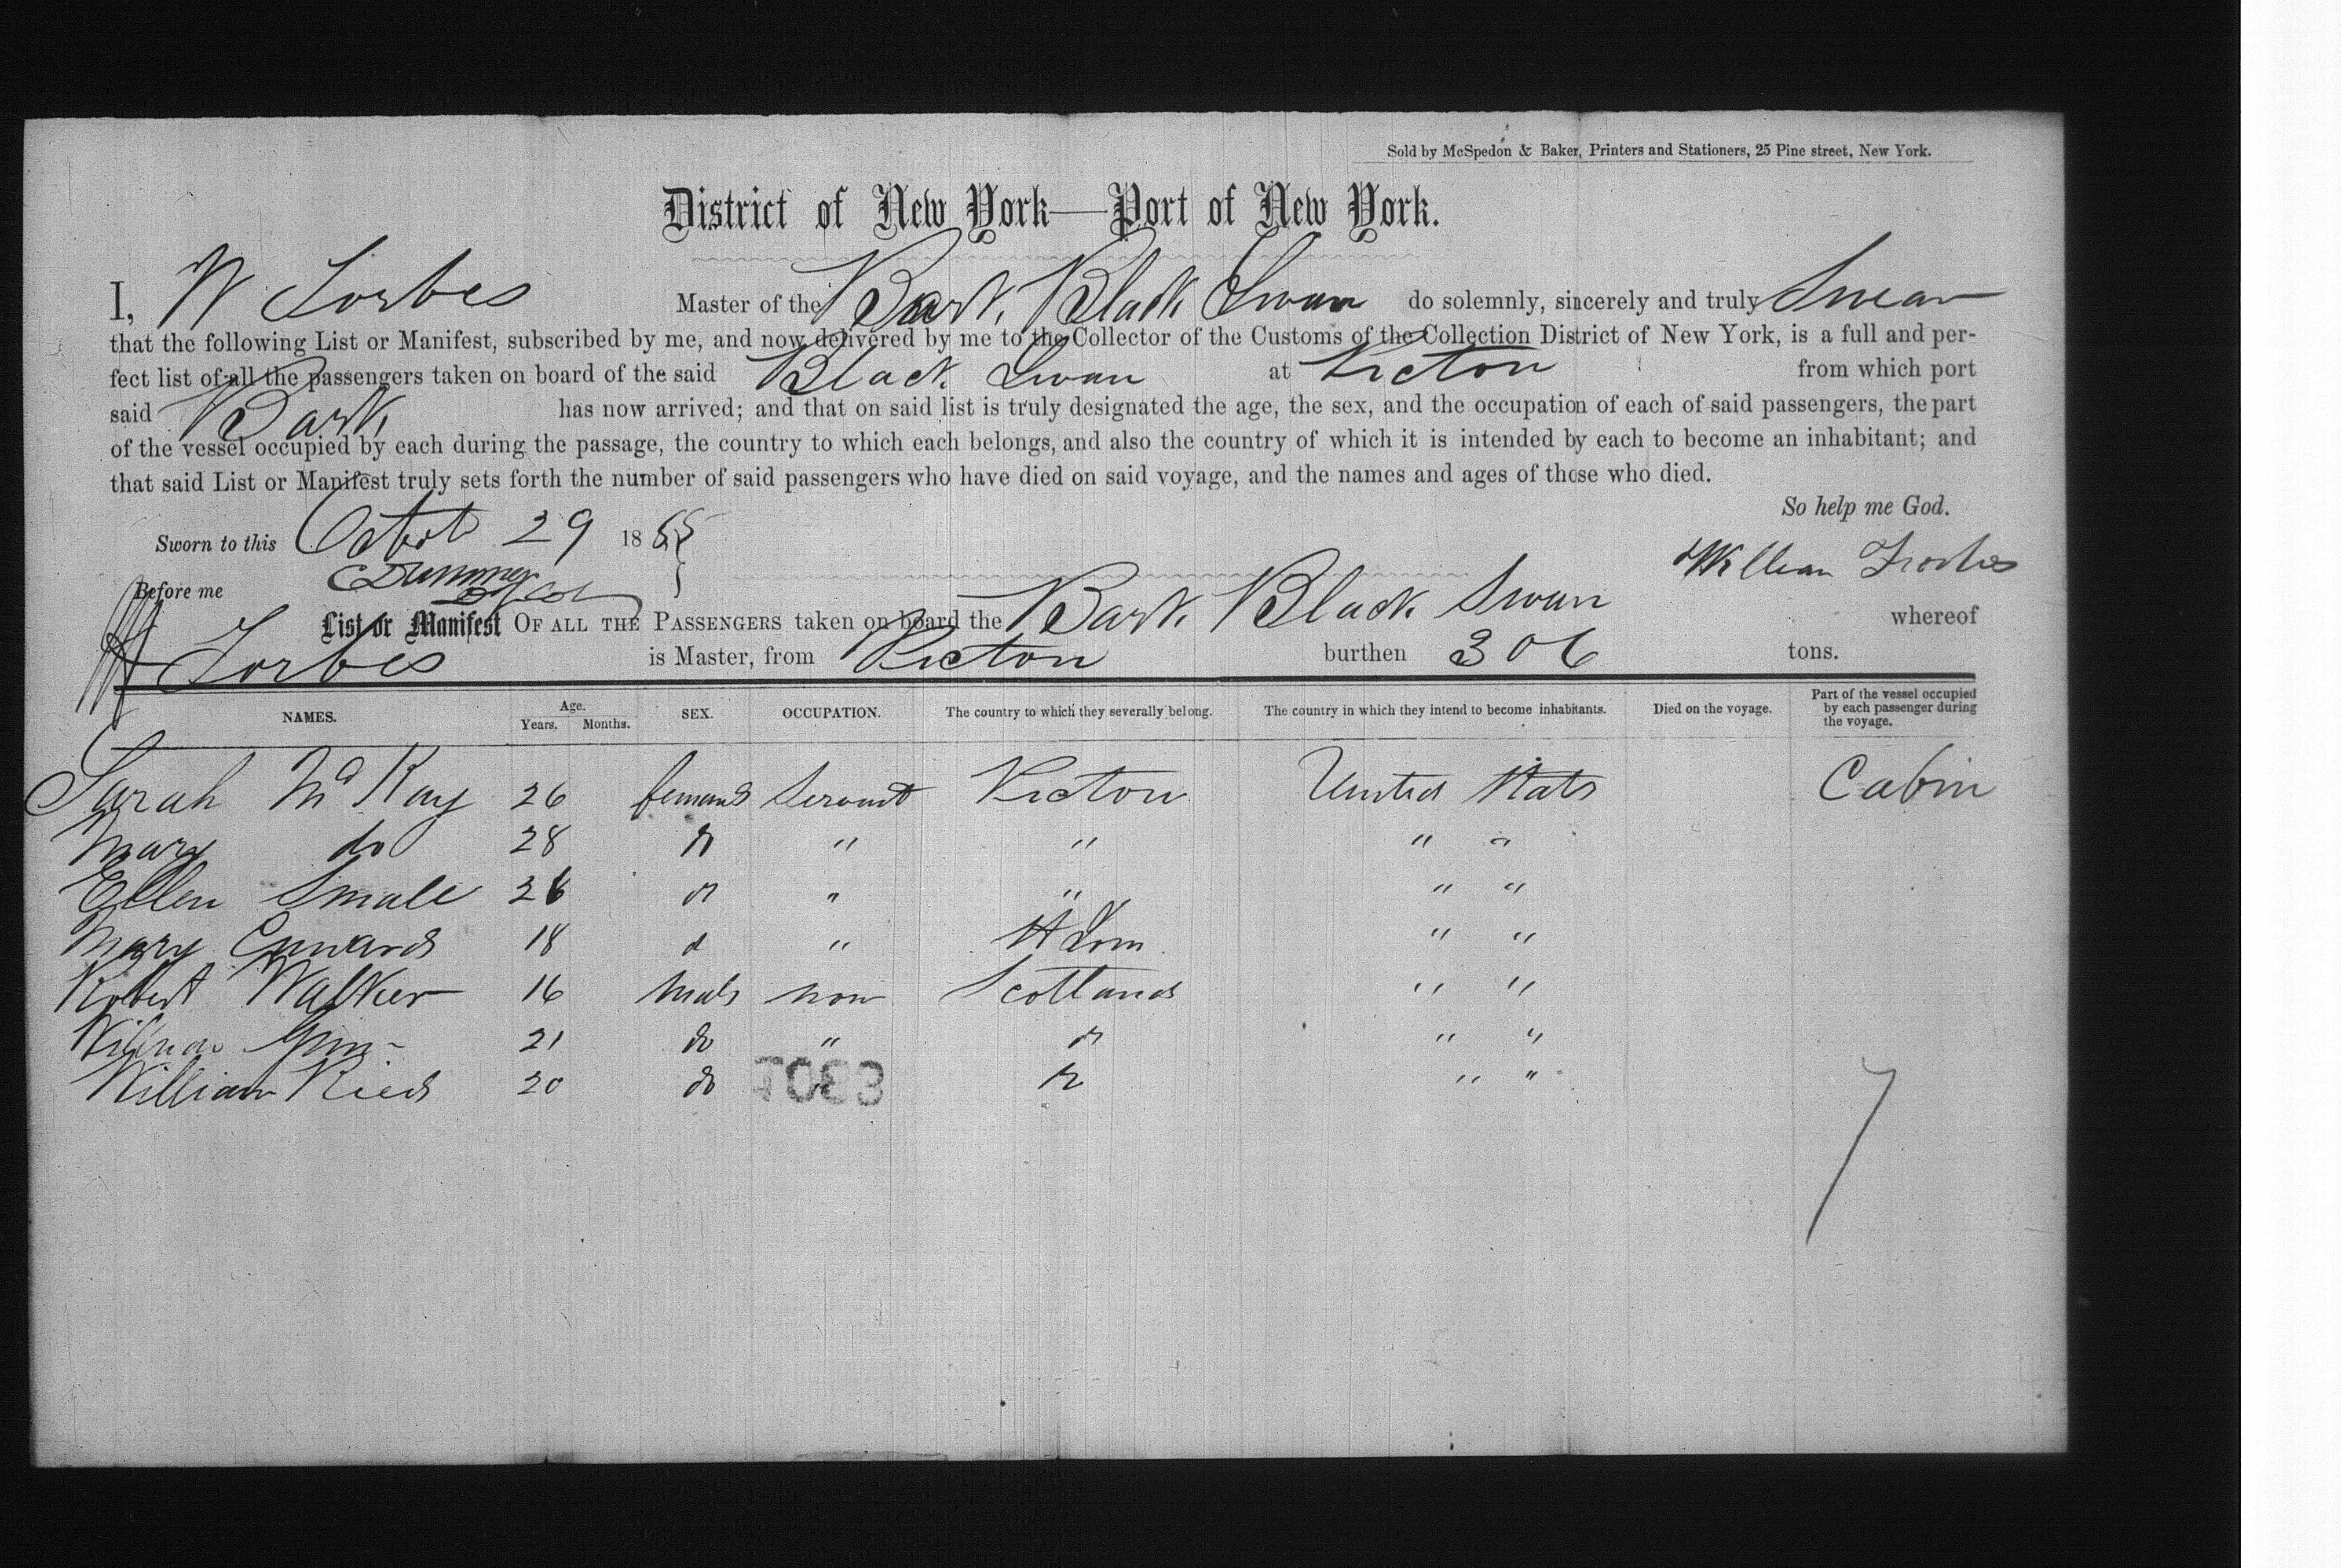 Sold by McSpedon & Baker, Printers and Stationers, 25 Pine street, New York.
District of New York—Port of New York.
I, W Forbes Master of the Bark Black Swan do solemnly, sincerely and truly Swear
that the following List or Manifest, subscribed by me, and now delivered by me to the Collector of the Customs of the Collection District of New York, is a full and per-
fect list of all the passengers taken on board of the said Black Swan at Picton from which port
said Bark has now arrived; and that on said list is truly designated the age, the sex, and the occupation of each of said passengers, the part
of the vessel occupied by each during the passage, the country to which each belongs, and also the country of which it is intended by each to become an inhabitant; and
that said List or Manifest truly sets forth the number of said passengers who have died on said voyage, and the names and ages of those who died.
So help me God.
Sworn to this October 29 1855
William Forbes
Before me
List or Manifest OF ALL THE PASSENGERS taken on board the Bark Black Swan whereof
Forbes is Master, from Picton burthen 306 tons.
NAMES. Age. Years. Months. SEX. OCCUPATION. The country to which they severally belong. The country in which they intend to become inhabitants. Died on the voyage. Part of the vessel occupied by each passenger during the voyage.
Sarah McKay 26 female Servant Picton United States Cabin
Mary do 28 do " " " "
Ellen Small 26 do " " " "
Mary Edwards 18 do " " "
Robert Walker 16 male none Scotland " "
21 do " do " "
William Ried 20 do do " "
1033
7